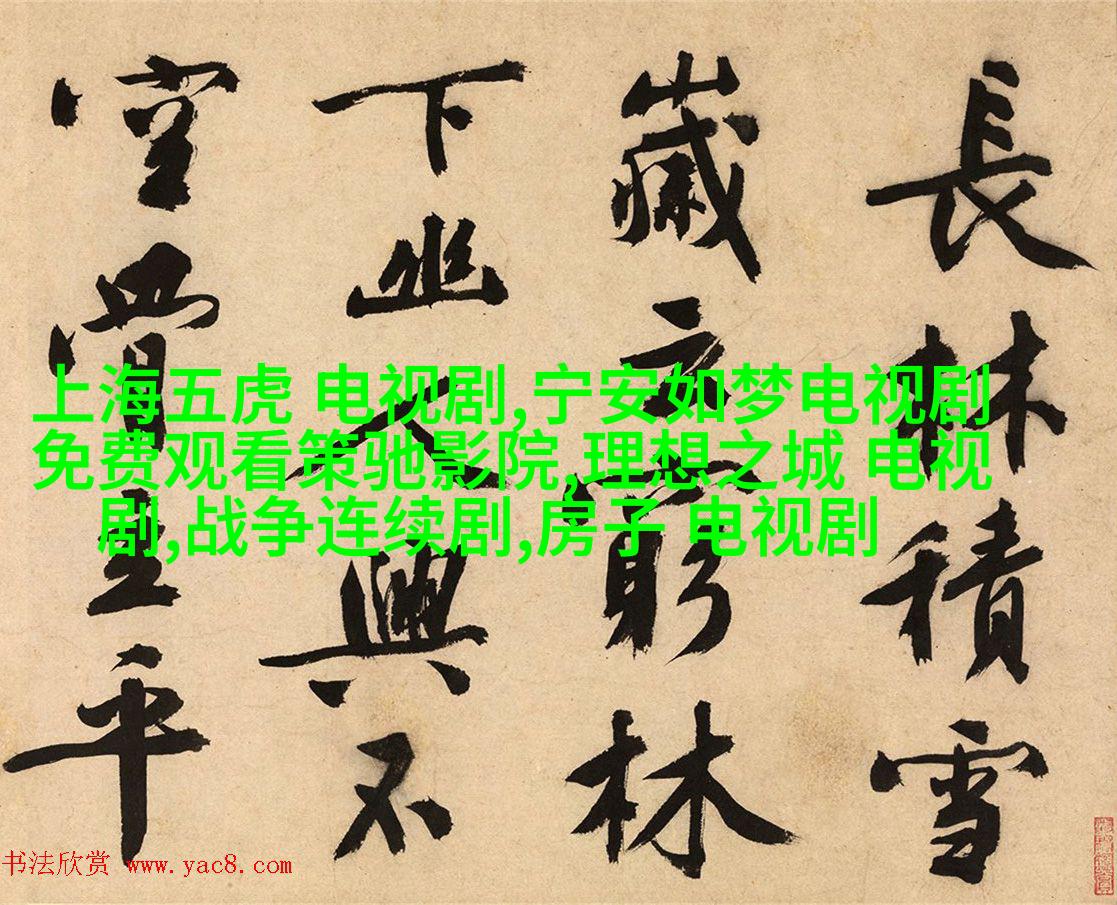 長林積雪
歲云窮林
下幽人興不
空平
上海五虎 电视剧,宁安如梦电视剧
免费观看策驰影院,理想之城 电视
剧,战争连续剧,房子 电视剧
书法欣赏 www.yac8.com